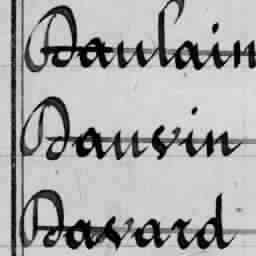 Daulain
Dauvin
Davard